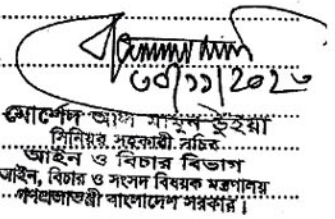 ৩০/১১/২০২৩
মোর্শেদ আল মামুন ভুঁইয়া
সিনিয়র সহকারী সচিব
আইন ও বিচার বিভাগ
আইন, বিচার ও সংসদ বিষয়ক মন্ত্রণালয়
গণপ্রজাতন্ত্রী বাংলাদেশ সরকার।